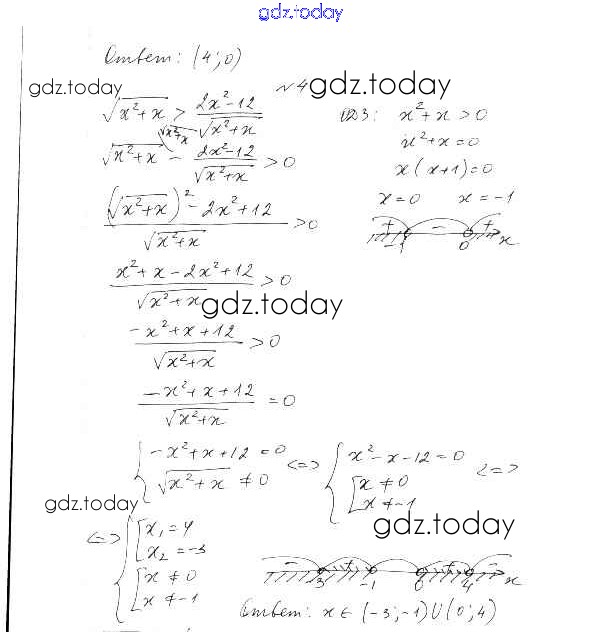 gdz.today
Ответ: (4;0)
gdz.today
№4
gdz.today
√(x²+x) > (2x²-12)/√(x²+x)
ОДЗ: x²+x>0
√(x²+x) - (2x²-12)/√(x²+x) > 0
√(x²+x)
x²+x=0
x(x+1)=0
x=0 x=-1
((√(x²+x))² - 2x²+12)/√(x²+x) > 0
+ - +
-1 0 x
(x²+x-2x²+12)/√(x²+x) > 0
gdz.today
(-x²+x+12)/√(x²+x) > 0
(-x²+x+12)/√(x²+x) = 0
{ -x²+x+12=0 <=> { x²-x-12=0 <=>
√(x²+x) ≠ 0 [ x≠0
x≠-1
gdz.today
gdz.today
<=> { [ x₁=4
x₂=-3
[ x≠0
x≠-1
- + + -
-3 -1 0 4 x
Ответ: x∈(-3;-1)∪(0;4)